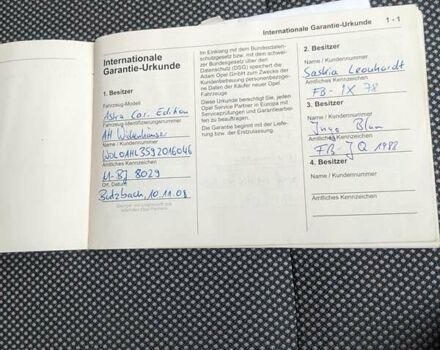 Internationale Garantie-Urkunde 1 - 1
Internationale
Garantie-Urkunde
1. Besitzer
Fahrzeug-Modell
Astra Car. Edition
Fahrzeug-Identifizierungsnummer
AH
Name / Kundennummer
W0L0AHL3592016046
Amtliches Kennzeichen
M-BJ 8029
Ort, Datum
Butzbach, 10.11.08
Im Einklang mit dem Bundesdaten-
schutzgesetz bzw. mit dem schwei-
zer Bundesgesetz über den
Datenschutz (DSG) speichert die
Adam Opel GmbH zum Zwecke der
Kundenbetreuung personenbezoge-
ne Daten der Käufer neuer Opel
Fahrzeuge.
Diese Urkunde berechtigt Sie, jeden
Opel Service Partner in Europa mit
Serviceprüfungen und Garantiearbei-
ten zu beauftragen.
Die Garantie beginnt mit der Liefe-
rung bzw. der Erstzulassung.
2. Besitzer
Name / Kundennummer
Saskia Leonhardt
Amtliches Kennzeichen
FB - IX 78
3. Besitzer
Name / Kundennummer
Inga Blum
Amtliches Kennzeichen
FB - JQ 1988
4. Besitzer
Name / Kundennummer
Amtliches Kennzeichen